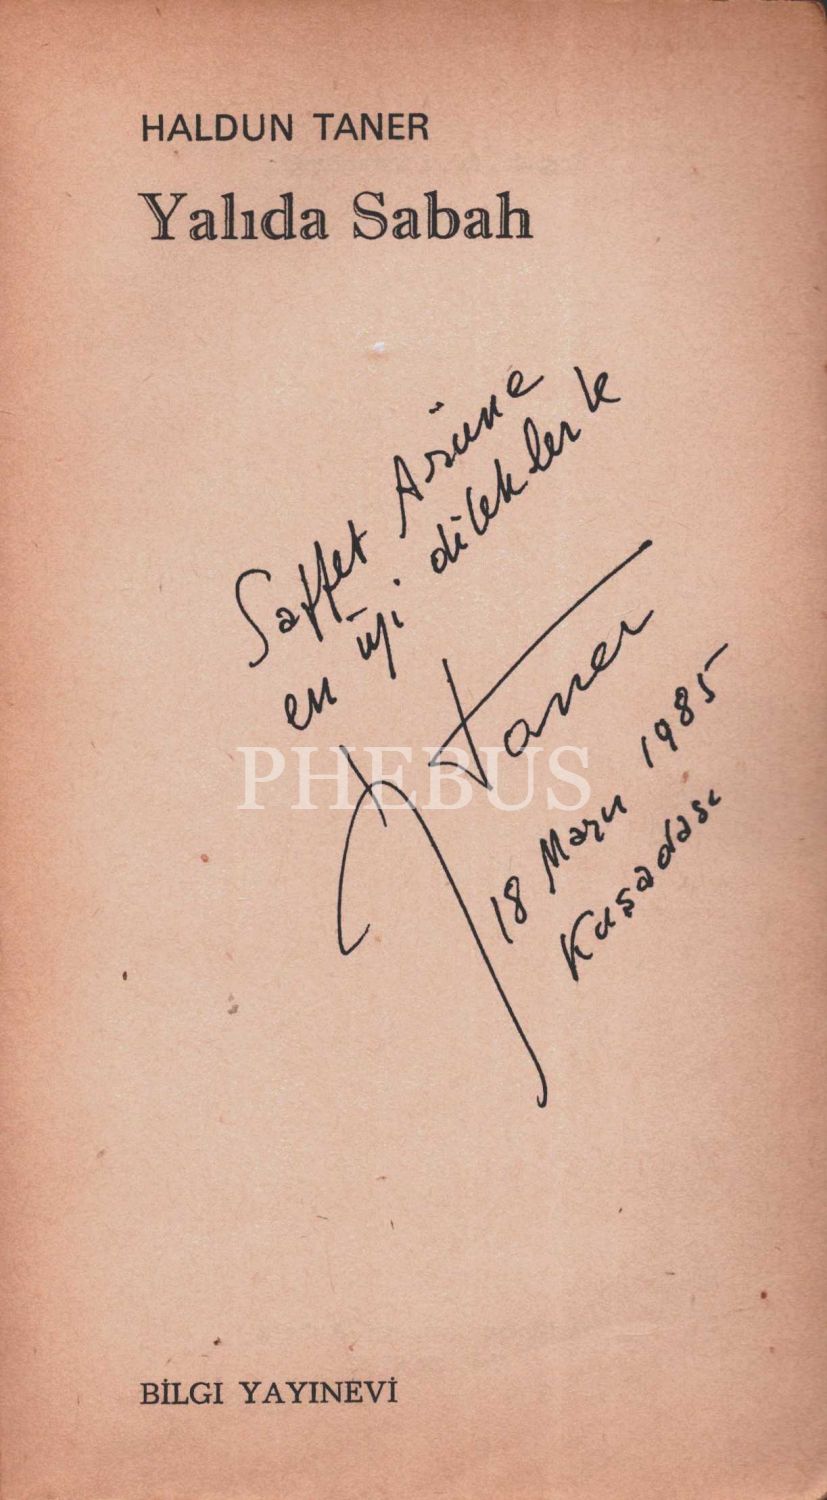 HALDUN TANER
Yalıda Sabah
Saffet Arüne
en iyi dileklerle
H Taner
PHEBUS
18 Mart 1985
Kuşadası
BİLGİ YAYINEVİ